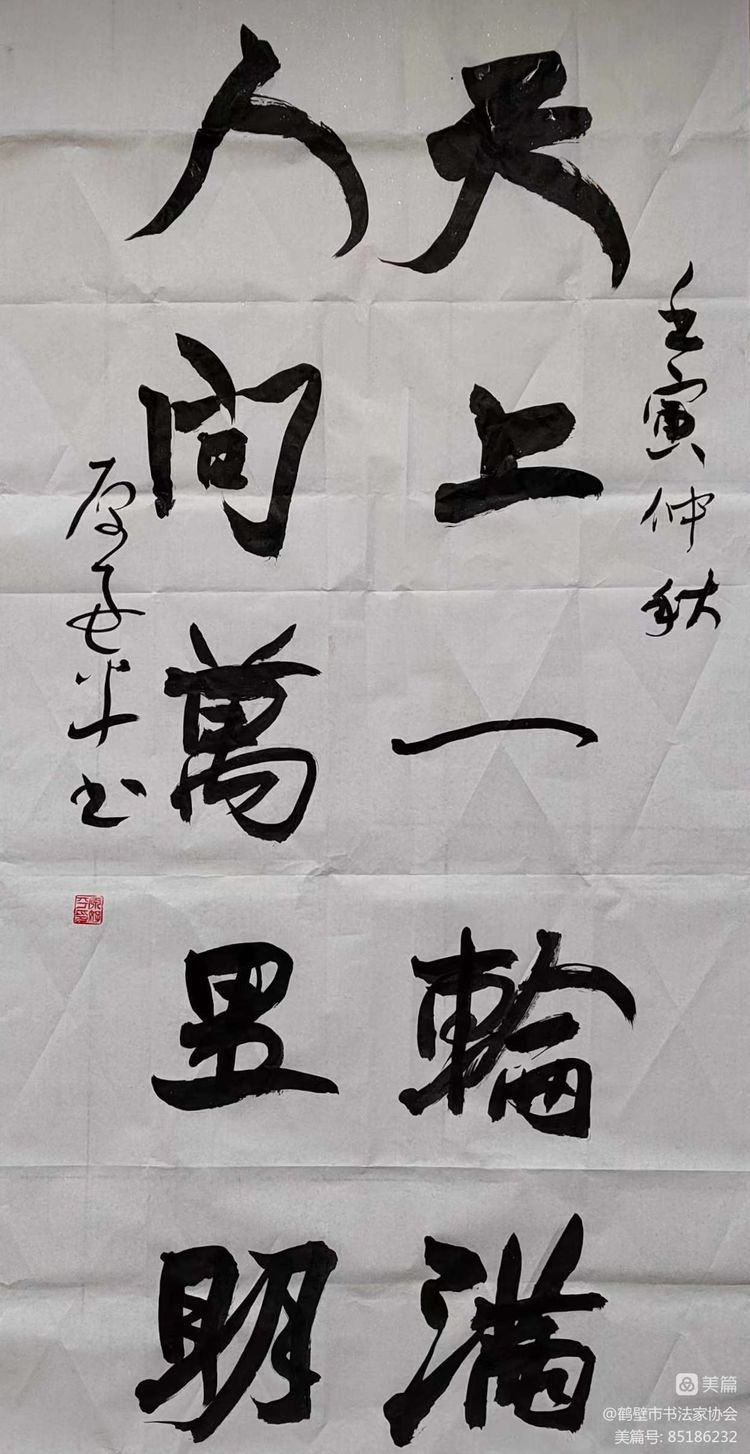 壬寅仲秋
天上一輪满
人间萬里明
书
美篇
@鹤壁市书法家协会
美篇号: 85186232